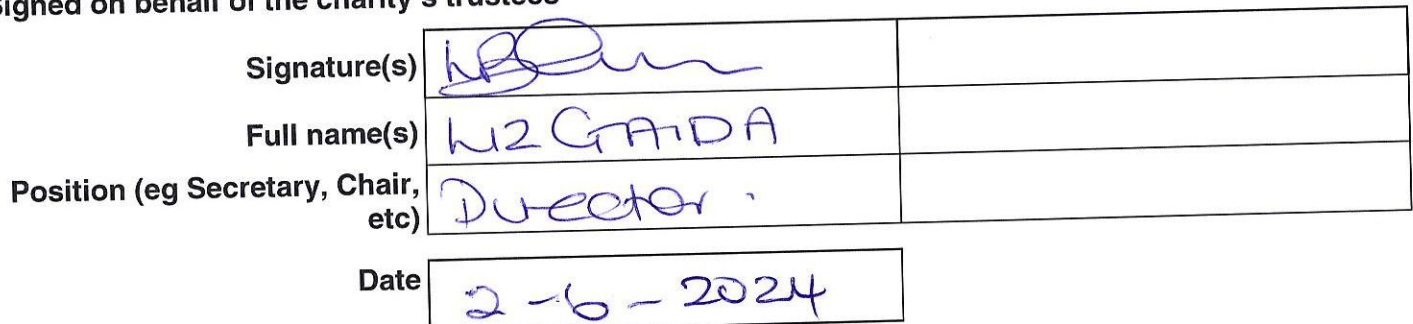 Signed on behalf of the charity's trustees
Signature(s)
Full name(s) LIZ GAIDA
Position (eg Secretary, Chair,
etc) Director.
Date 2-6-2024